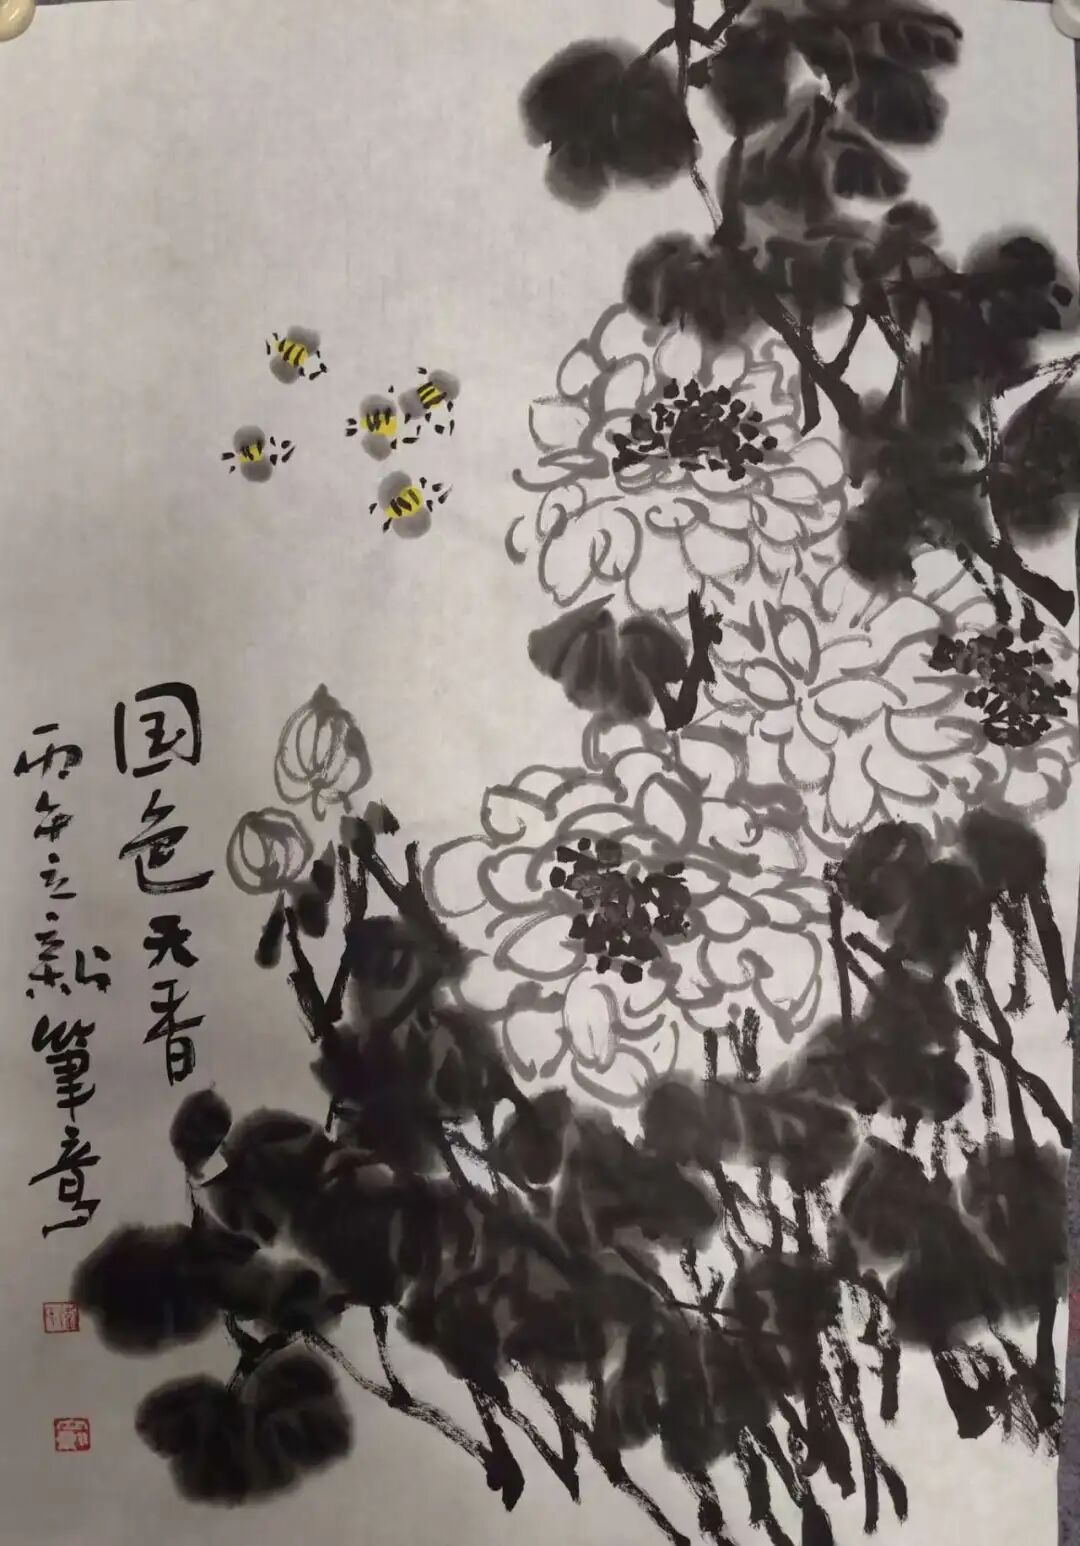 国色天香
丙午立新筆意